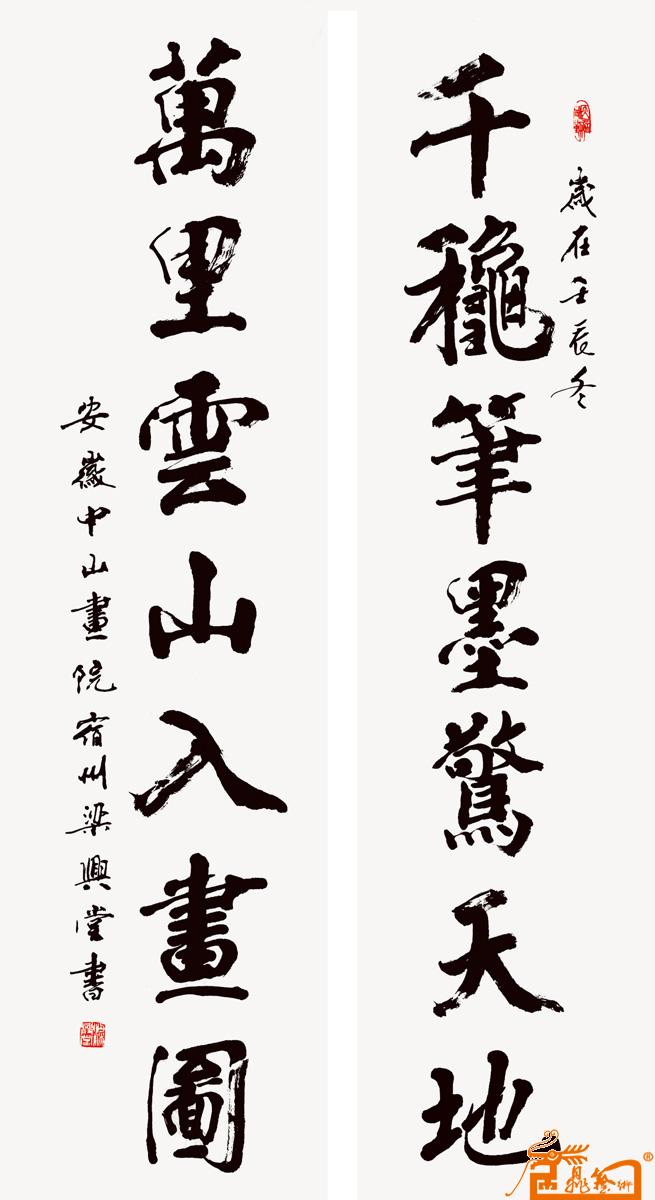 歲在壬辰冬
千龝筆墨驚天地
萬里雲山入畫圖
安徽中山畫院宿州梁興堂書